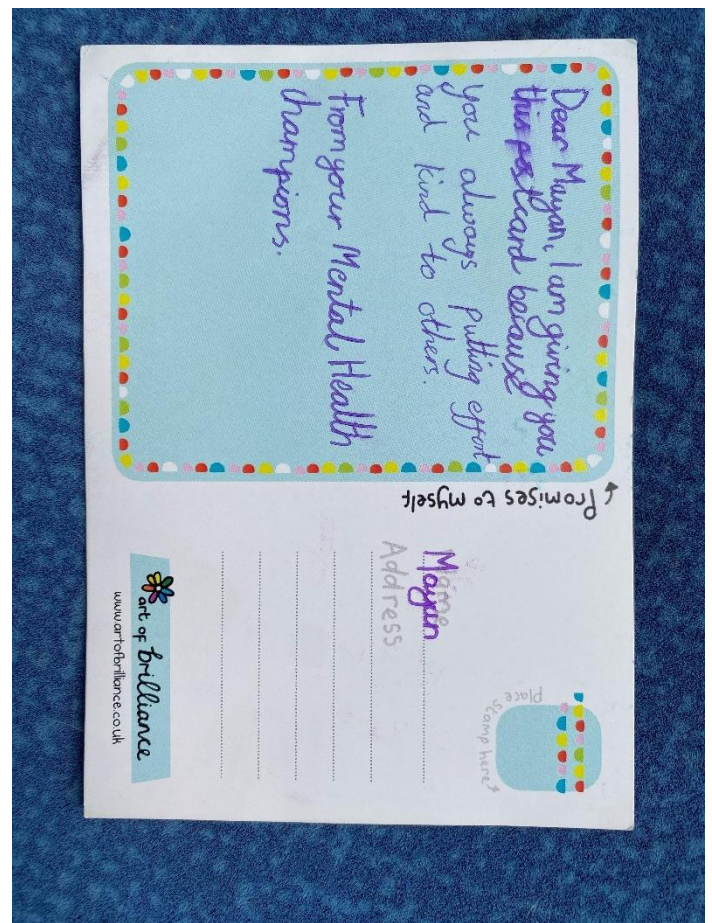 Dear Mayan, I am giving you
this postcard because
you always putting effort
and kind to others.
From your Mental Health
Champions.
Promises to myself
place
stamp here
Name
Mayan
Address
art of brilliance
www.artofbrilliance.co.uk